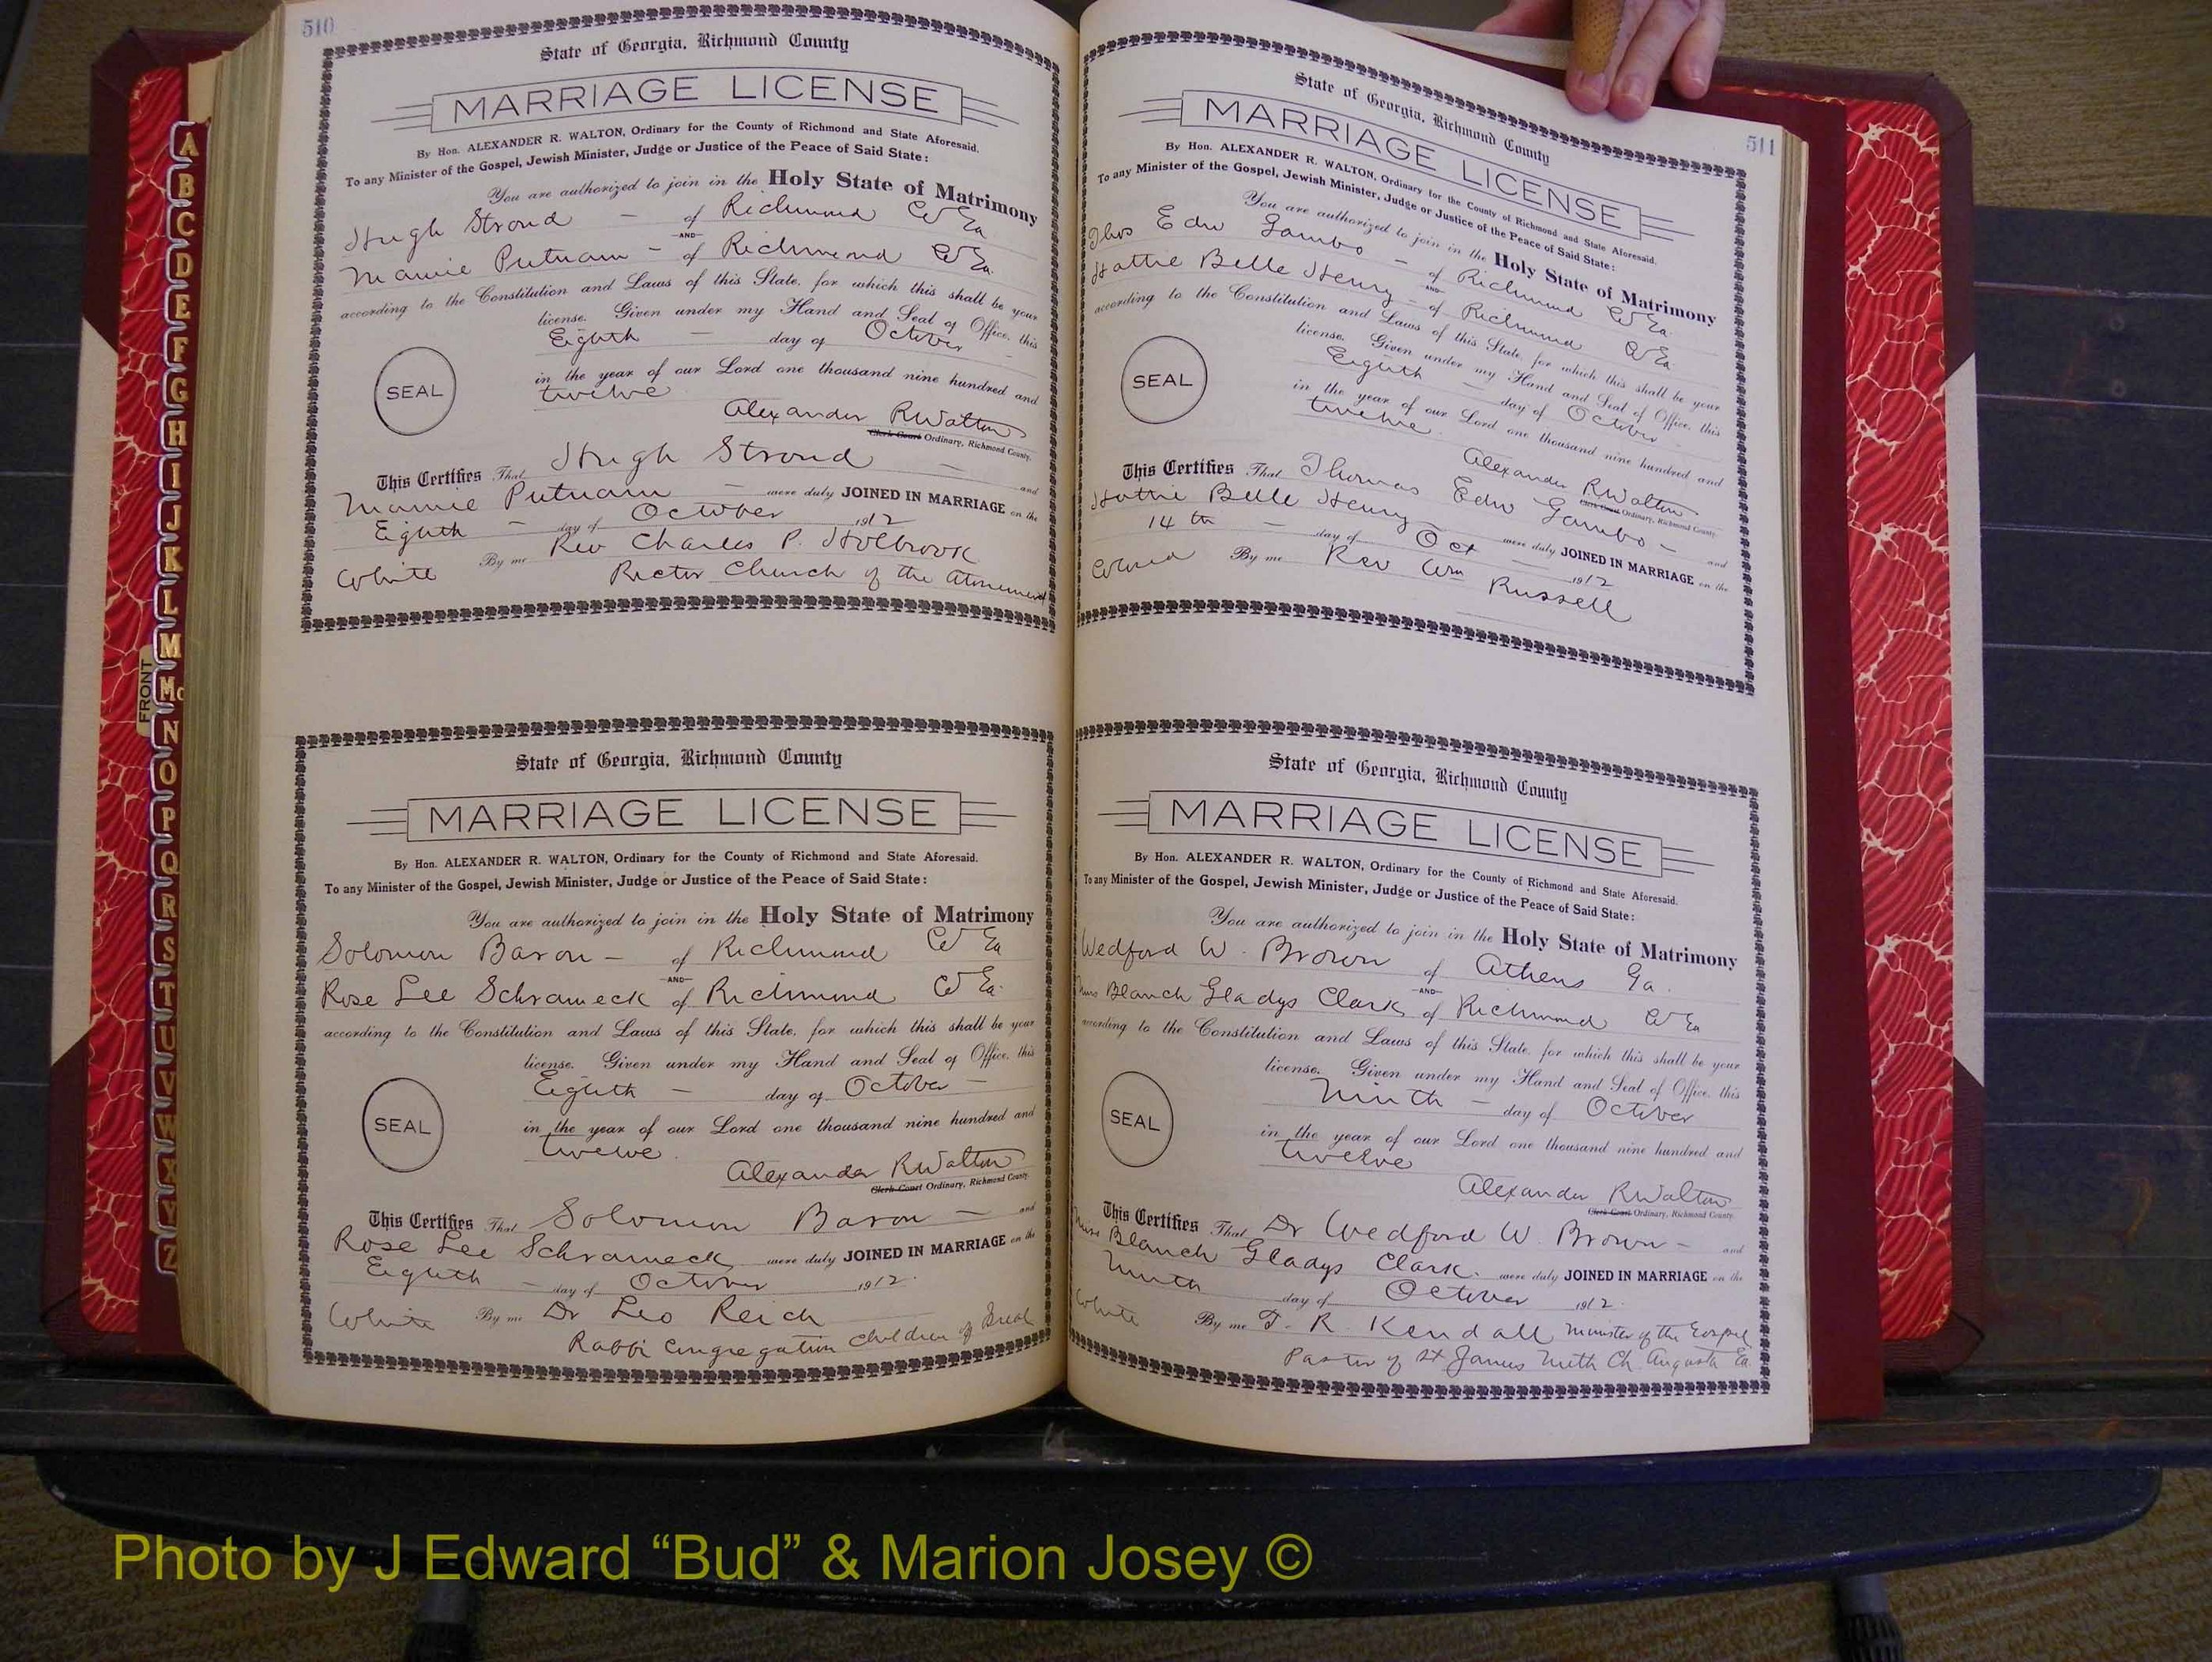 A
B
C
D
E
F
G
H
I
J
K
L
M
Mc
N
O
P
Q
R
S
T
U
V
W
X
Y
Z
FRONT
510
State of Georgia, Richmond County
MARRIAGE LICENSE
By Hon. ALEXANDER R. WALTON, Ordinary for the County of Richmond and State Aforesaid.
To any Minister of the Gospel, Jewish Minister, Judge or Justice of the Peace of Said State:
You are authorized to join in the Holy State of Matrimony
Hugh Stroud — of Richmond Co Ga
AND
Mamie Putnam — of Richmond Co Ga.
according to the Constitution and Laws of this State, for which this shall be your
license. Given under my Hand and Seal of Office, this
Eighth — day of October —
SEAL
in the year of our Lord one thousand nine hundred and
twelve
Alexander R Walton
Clerk Court Ordinary, Richmond County.
This Certifies That Hugh Stroud — and
Mamie Putnam — were duly JOINED IN MARRIAGE on the
Eighth — day of October 1912
White By me Rev Charles P. Holbrook
Rector Church of the Atonement
State of Georgia, Richmond County
MARRIAGE LICENSE
By Hon. ALEXANDER R. WALTON, Ordinary for the County of Richmond and State Aforesaid.
To any Minister of the Gospel, Jewish Minister, Judge or Justice of the Peace of Said State:
You are authorized to join in the Holy State of Matrimony
Solomon Baron — of Richmond Co Ga
AND
Rose Lee Schrameck of Richmond Co Ga.
according to the Constitution and Laws of this State, for which this shall be your
license. Given under my Hand and Seal of Office, this
Eighth — day of October —
SEAL
in the year of our Lord one thousand nine hundred and
twelve.
Alexander R Walton
Clerk Court Ordinary, Richmond County.
This Certifies That Solomon Baron — and
Rose Lee Schrameck were duly JOINED IN MARRIAGE on the
Eighth — day of October 1912.
White By me Dr Leo Reich
Rabbi Congregation Children of Isreal
511
State of Georgia, Richmond County
MARRIAGE LICENSE
By Hon. ALEXANDER R. WALTON, Ordinary for the County of Richmond and State Aforesaid.
To any Minister of the Gospel, Jewish Minister, Judge or Justice of the Peace of Said State:
You are authorized to join in the Holy State of Matrimony
Thos Edw Gambo — of Richmond Co Ga.
AND
Hattie Belle Henry — of Richmond Co Ga.
according to the Constitution and Laws of this State, for which this shall be your
license. Given under my Hand and Seal of Office, this
Eighth — day of October
SEAL
in the year of our Lord one thousand nine hundred and
twelve.
Alexander R Walton
Clerk Court Ordinary, Richmond County.
This Certifies That Thomas Edw Gambo — and
Hattie Belle Henry — were duly JOINED IN MARRIAGE on the
14th — day of Oct 1912
Colored By me Rev Wm Russell
State of Georgia, Richmond County
MARRIAGE LICENSE
By Hon. ALEXANDER R. WALTON, Ordinary for the County of Richmond and State Aforesaid.
To any Minister of the Gospel, Jewish Minister, Judge or Justice of the Peace of Said State:
You are authorized to join in the Holy State of Matrimony
Wedford W. Brown of Athens Ga.
AND
Miss Blanch Gladys Clark of Richmond Co Ga
according to the Constitution and Laws of this State, for which this shall be your
license. Given under my Hand and Seal of Office, this
Ninth — day of October
SEAL
in the year of our Lord one thousand nine hundred and
twelve
Alexander R Walton
Clerk Court Ordinary, Richmond County.
This Certifies That Dr Wedford W. Brown — and
Miss Blanch Gladys Clark. were duly JOINED IN MARRIAGE on the
Ninth day of October 1912.
White By me T. R. Kendall Minister of the Gospel
Pastor of St James Meth Ch. Augusta Ga.
Photo by J Edward “Bud” & Marion Josey ©